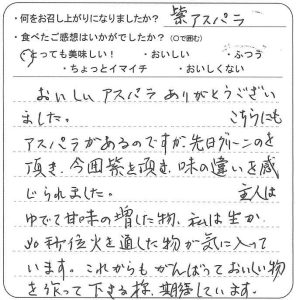 ・何をお召し上がりになりましたか？ 紫アスパラ
・食べたご感想はいかがでしたか？（○で囲む）
・とっても美味しい！ ・おいしい ・ふつう
・ちょっとイマイチ ・おいしくない
おいしいアスパラありがとうござい
ました。 こちらにも
アスパラがあるのですが、先日グリーンのを
頂き、今回紫を頂き、味の違いを感
じられました。 主人は
ゆでて甘味の増した物、私は生か
秒位火を通した物が気に入って
います。これからもがんばっておいしい物
を作って下さる様、期待しています。